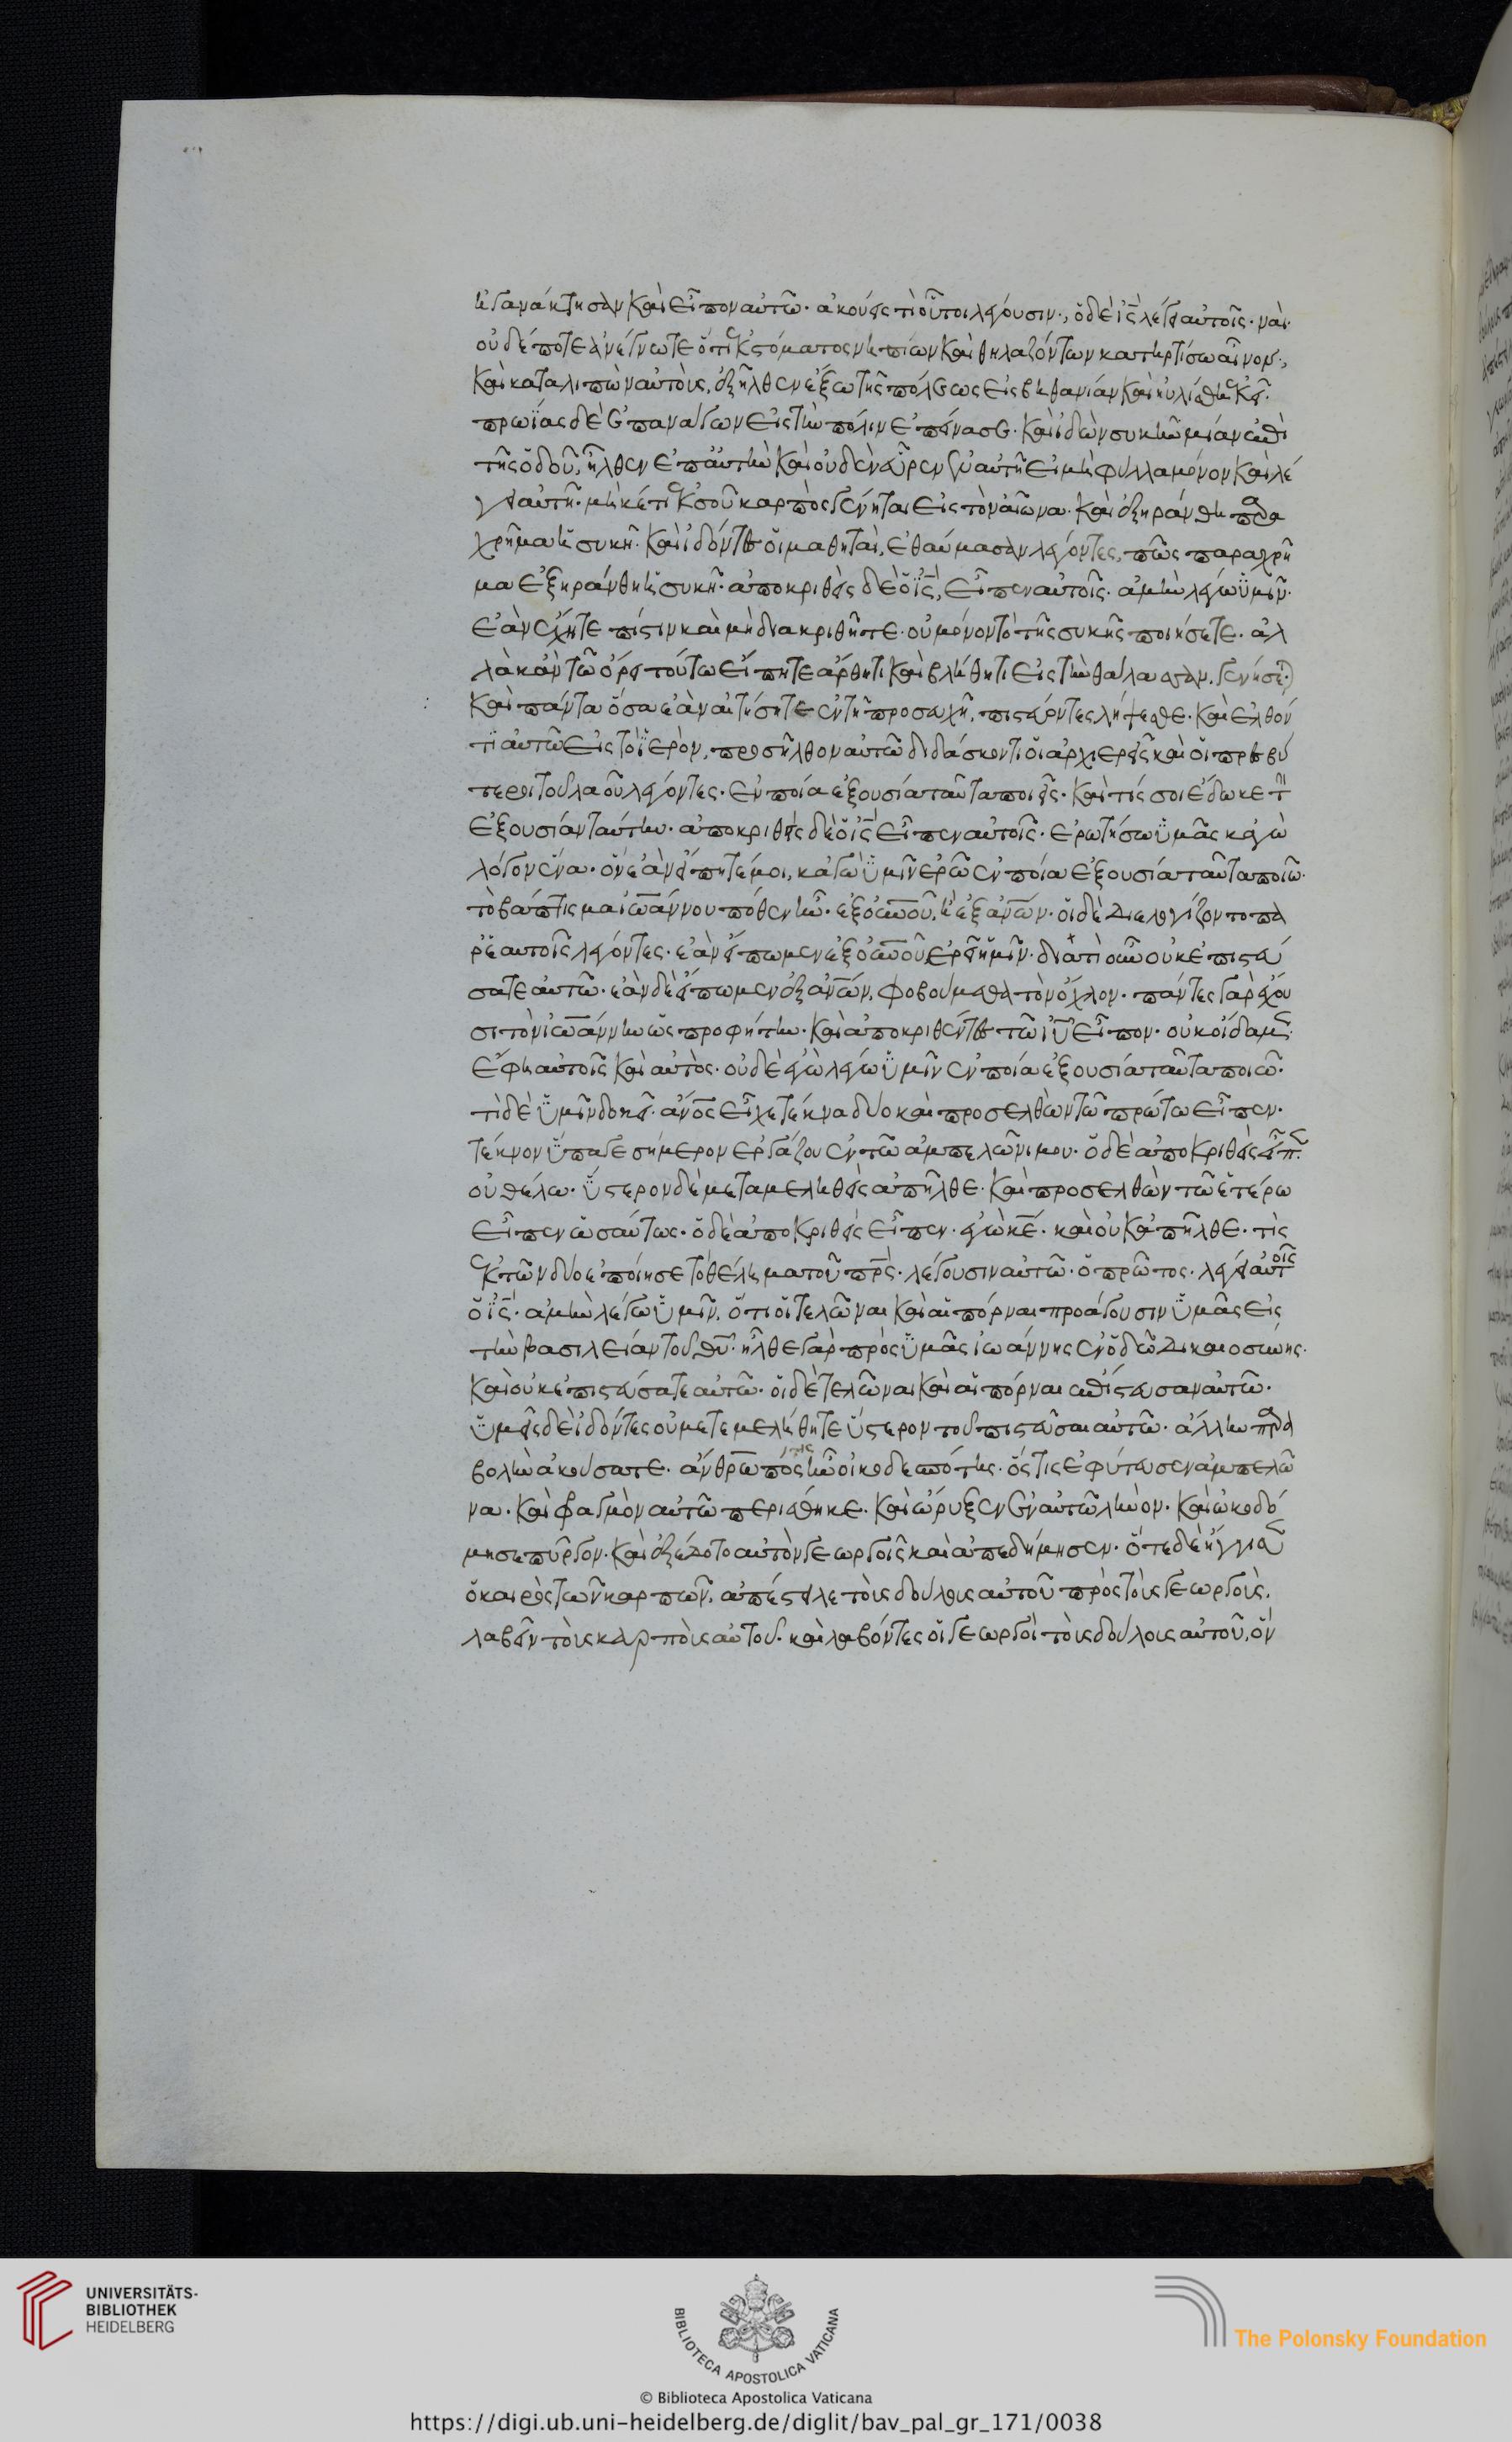 ἠγανάκτησαν καὶ εἶπον αὐτῶ· ἀκούεις τί οὗτοι λέγουσιν·, ὁ δὲ ις̅ λέγει αὐτοῖς· ναὶ·
οὐδέποτε ἀνέγνωτε ὅτι ἐκ στόματος νηπίων καὶ θηλαζόντων κατηρτίσω αἶνον·,
καὶ καταλιπὼν αὐτοὺς, ἐξῆλθεν ἔξω τῆς πόλεως εἰς βηθανίαν καὶ ηὐλίσθη ἐκεῖ·
πρωΐας δὲ ἐπανάγων εἰς τὴν πόλιν ἐπείνασε· καὶ ἰδὼν συκῆν μίαν ἐπὶ
τῆς ὁδοῦ, ἦλθεν ἐπ' αὐτὴν καὶ οὐδὲν εὗρεν ἐν αὐτῆ εἰ μὴ φύλλα μόνον καὶ λέ
γει αὐτῆ· μηκέτι ἐκ σοῦ καρπὸς γένηται εἰς τὸν αἰῶνα· καὶ ἐξηράνθη παρα
χρῆμα ἡ συκῆ· καὶ ἰδόντες οἱ μαθηταὶ, ἐθαύμασαν λέγοντες, πῶς παραχρῆ
μα ἐξηράνθη ἡ συκῆ· ἀποκριθεὶς δὲ ὁ ϊς̅, εἶπεν αὐτοῖς· ἀμὴν λέγω ὑμῖν·
ἐὰν ἔχητε πίστιν καὶ μὴ διακριθῆτε· οὐ μόνον τὸ τῆς συκῆς ποιήσετε· ἀλ
λὰ κἂν τῶ ὄρει τούτω εἴπητε ἄρθητι καὶ βλήθητι εἰς τὴν θάλασσαν, γενήσεται·
καὶ πάντα ὅσα ἐὰν αἰτήσητε ἐν τῆ προσευχῆ, πιστεύοντες λήψεσθε· καὶ ἐλθόν
τι αὐτῶ εἰς τὸ ἱερὸν, προσῆλθον αὐτῶ διδάσκοντι οἱ ἀρχιερεῖς καὶ οἱ πρεσβύ
τεροι τοῦ λαοῦ λέγοντες· ἐν ποία ἐξουσία ταῦτα ποιεῖς· καὶ τίς σοι ἔδωκε τὴν
ἐξουσίαν ταύτην· ἀποκριθεὶς δὲ ὁ ις̅ εἶπεν αὐτοῖς· ἐρωτήσω ὑμᾶς κἀγὼ
λόγον ἕνα· ὃν ἐὰν εἴπητέ μοι, κἀγὼ ὑμῖν ἐρῶ ἐν ποία ἐξουσία ταῦτα ποιῶ·
τὸ βάπτισμα ἰω̅άννου πόθεν ἦν· ἐξ ο̅υ̅ν̅ο̅υ̅, ἢ ἐξ ἀν̅ω̅ν· οἱ δὲ διελογίζοντο πα
ρ' ἑαυτοῖς λέγοντες· ἐὰν εἴπωμεν ἐξ ο̅υ̅ν̅ο̅υ̅, ἐρεῖ ἡμῖν· διατί οὖν οὐκ ἐπιστεύ
σατε αὐτῶ· ἐὰν δὲ εἴπωμεν ἐξ ἀν̅ω̅ν, φοβούμεθα τὸν ὄχλον· πάντες γὰρ ἔχου
σι τὸν ἰω̅άννην ὡς προφήτην· καὶ ἀποκριθέντες τῶ ιυ̅ εἶπον· οὐκ οἴδαμεν·
ἔφη αὐτοῖς καὶ αὐτὸς· οὐδὲ ἐγὼ λέγω ὑμῖν ἐν ποία ἐξουσία ταῦτα ποιῶ·
τί δὲ ὑμῖν δοκεῖ· ἄν̅ο̅ς εἶχε τέκνα δύο καὶ προσελθὼν τῶ πρώτω εἶπεν·
τέκνον ὕπαγε σήμερον ἐργάζου ἐν τῶ ἀμπελῶνι μου· ὁ δὲ ἀποκριθεὶς εἶπεν
οὐ θέλω· ὕστερον δὲ μεταμεληθεὶς ἀπῆλθε· καὶ προσελθὼν τῶ ἑτέρω
εἶπεν ὡσαύτως· ὁ δὲ ἀποκριθεὶς εἶπεν· ἐγὼ κε̅· καὶ οὐκ ἀπῆλθε· τίς
ἐκ τῶν δύο ἐποίησε τὸ θέλημα τοῦ πρ̅ς· λέγουσιν αὐτῶ· ὁ πρῶτος· λέγει αὐτοῖς
ὁ ϊς̅· ἀμὴν λέγω ὑμῖν, ὅτι οἱ τελῶναι καὶ αἱ πόρναι προάγουσιν ὑμᾶς εἰς
τὴν βασιλείαν τοῦ θυ̅· ἦλθε γὰρ πρὸς ὑμᾶς ἰωάννης ἐν ὁδῶ δικαιοσύνης·
καὶ οὐκ ἐπιστεύσατε αὐτῶ· οἱ δὲ τελῶναι καὶ αἱ πόρναι ἐπίστευσαν αὐτῶ·
ὑμεῖς δὲ ἰδόντες οὐ μετεμελήθητε ὕστερον τοῦ πιστεῦσαι αὐτῶ· ἄλλην παρα
βολὴν ἀκούσατε· ἄνθρωπός τις ἦν οἰκοδεσπότης· ὅστις ἐφύτευσεν ἀμπελῶ
να· καὶ φραγμὸν αὐτῶ περιέθηκε· καὶ ὤρυξεν ἐν αὐτῶ ληνὸν· καὶ ὠκοδό
μησε πύργον· καὶ ἐξέδοτο αὐτὸν γεωργοῖς καὶ ἀπεδήμησεν· ὅτε δὲ ἤγγισεν
ὁ καιρὸς τῶν καρπῶν, ἀπέστειλε τοὺς δούλους αὐτοῦ πρὸς τοὺς γεωργοὺς,
λαβεῖν τοὺς καρποὺς αὐτοῦ· καὶ λαβόντες οἱ γεωργοὶ τοὺς δούλους αὐτοῦ, ὃν
UNIVERSITÄTS-
BIBLIOTHEK
HEIDELBERG
BIBLIOTECA APOSTOLICA VATICANA
The Polonsky Foundation
© Biblioteca Apostolica Vaticana
https://digi.ub.uni-heidelberg.de/diglit/bav_pal_gr_171/0038